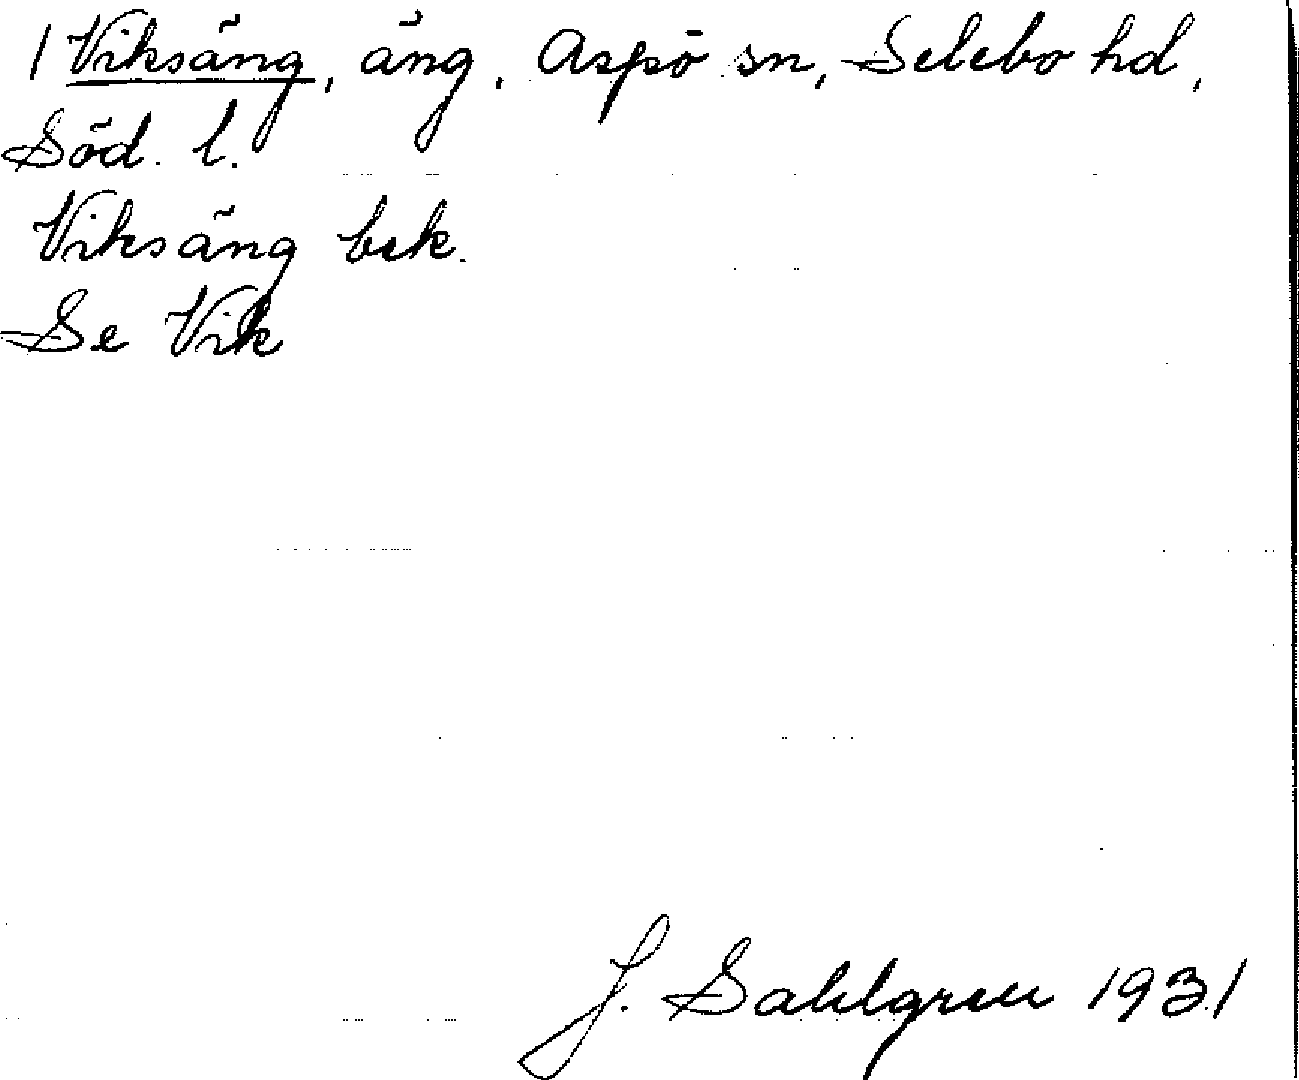 / Viksäng, äng, Aspö sn, Selebo hd,
Söd. l.
Viksäng bek.
Se Vik
J. Sahlgren 1931